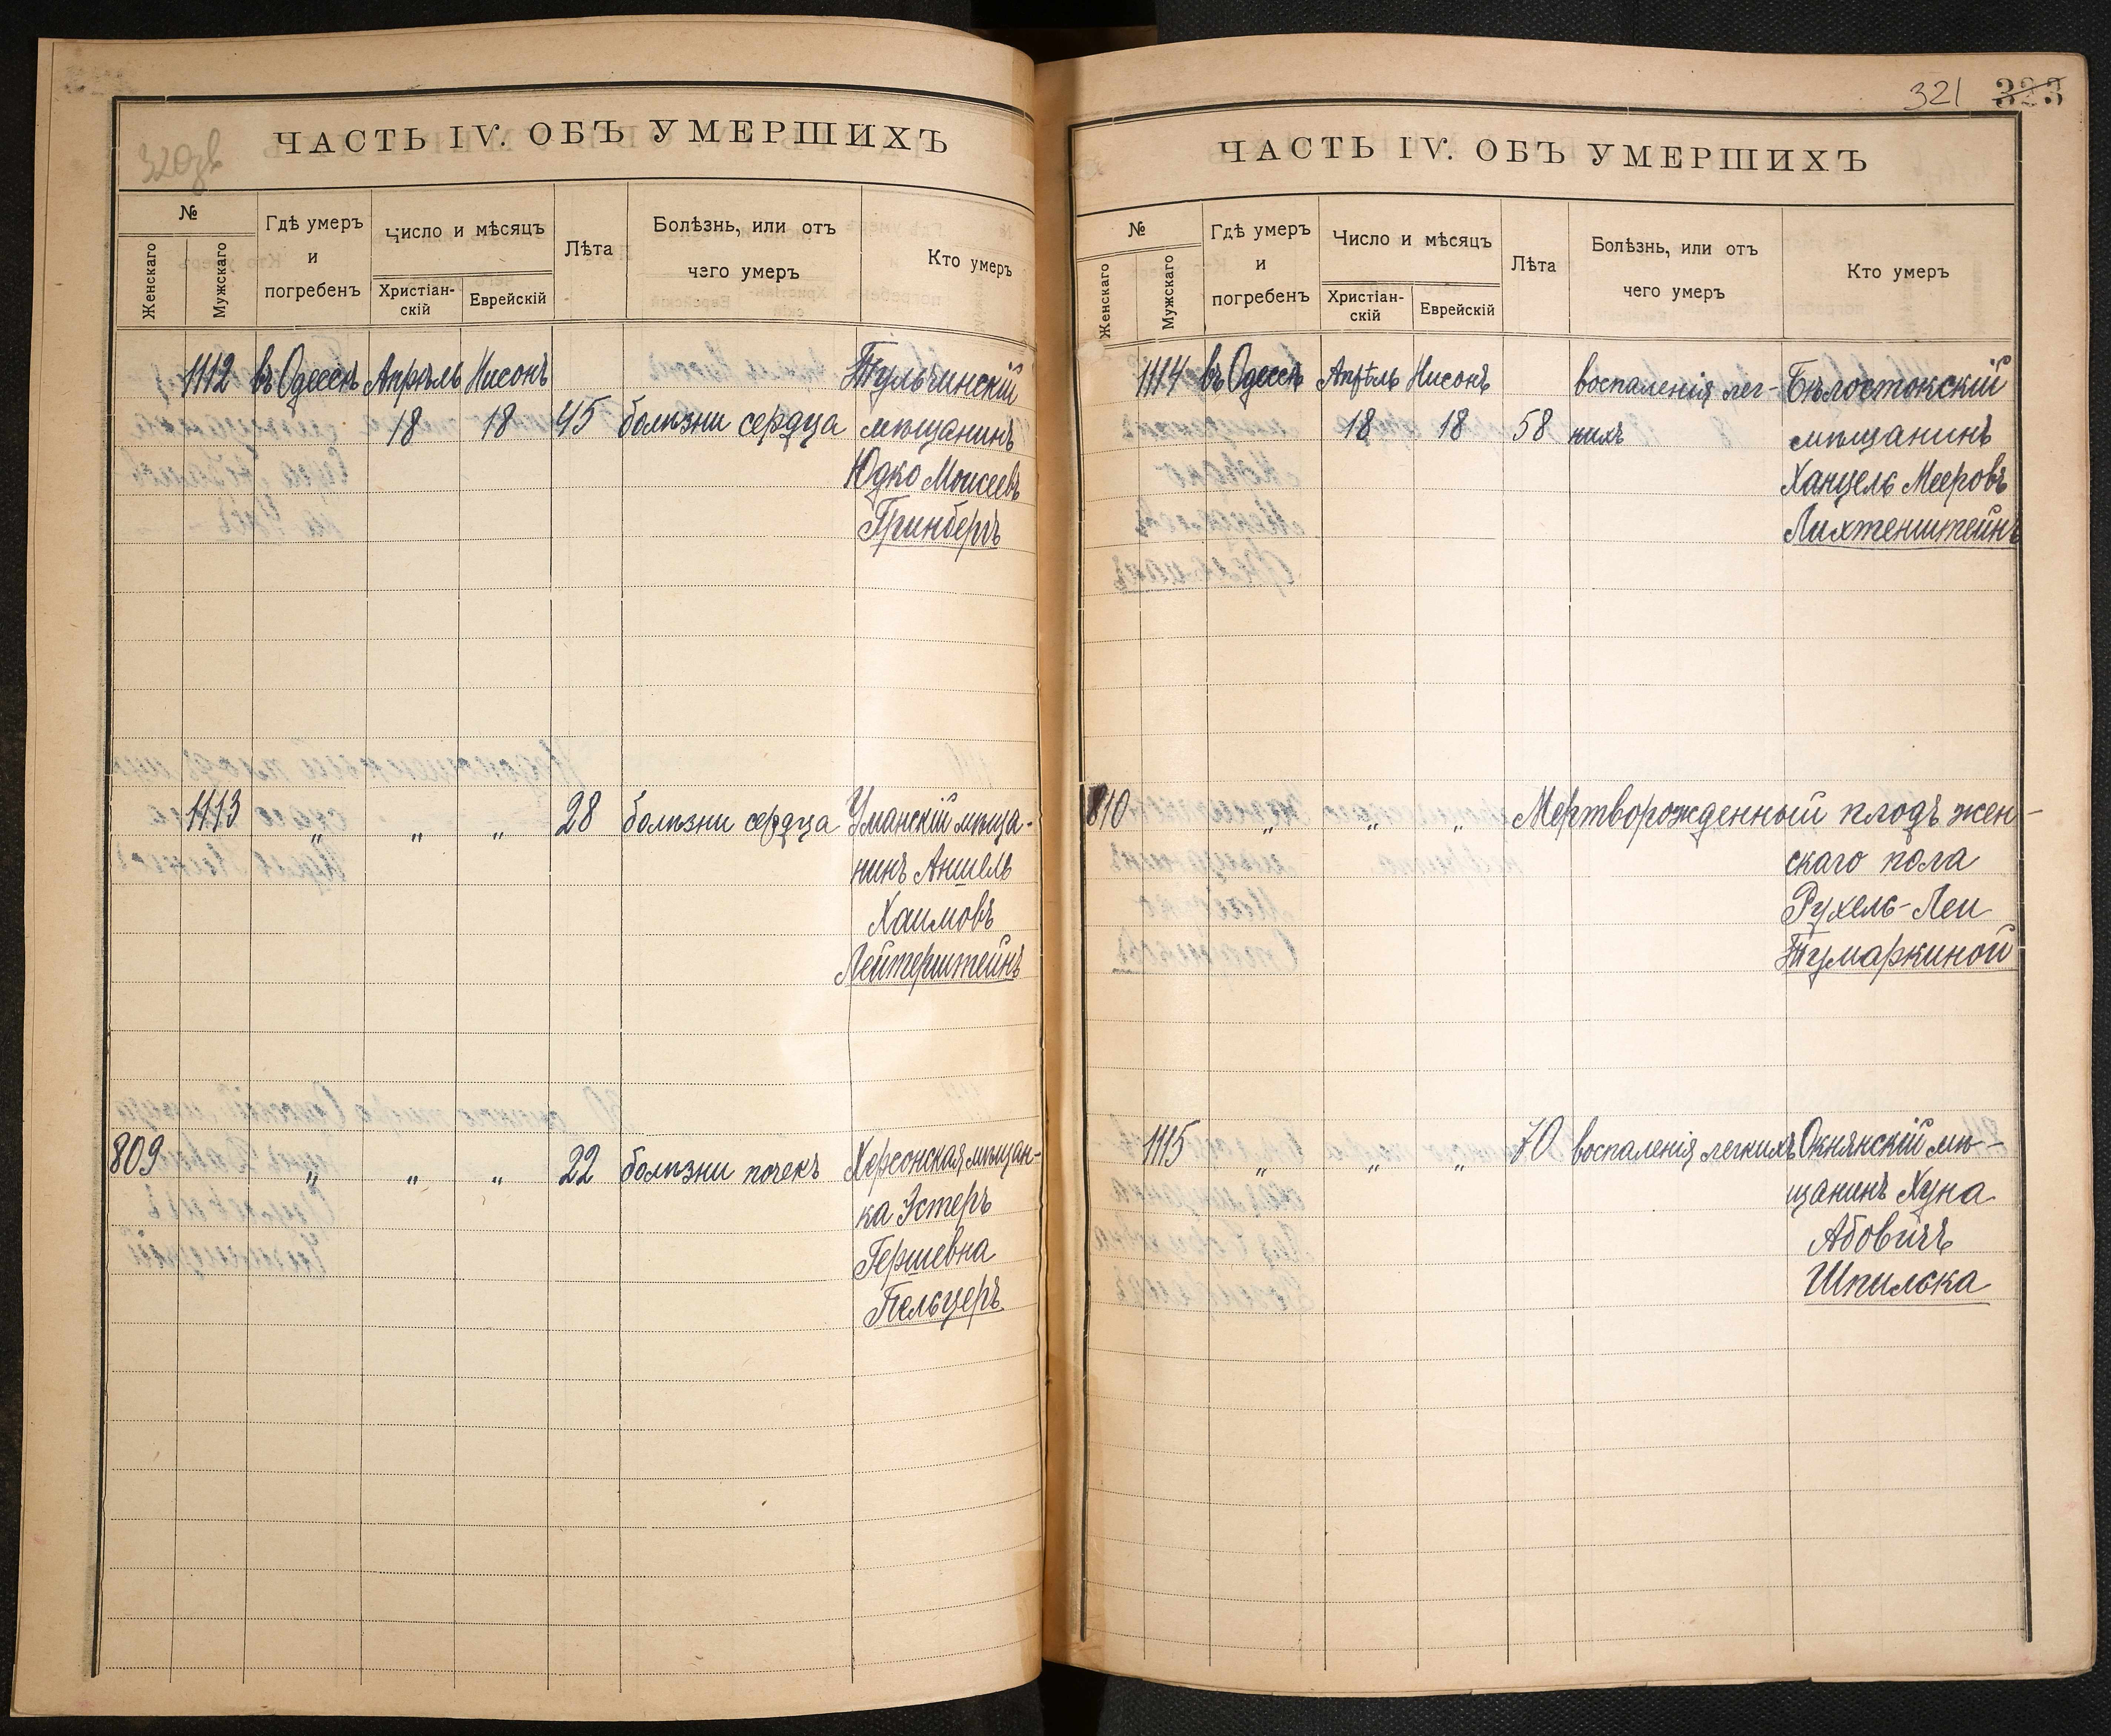 320зв
ЧАСТЬ IV. ОБЪ УМЕРШИХЪ
№
Женскаго
Мужскаго
Гдѣ умеръ
и
погребенъ
Число и мѣсяцъ
Христіан-
скій
Еврейскій
Лѣта
Болѣзнь, или отъ
чего умеръ
Кто умеръ
1112 въ Одессѣ Апрѣль Нисонъ Тульчинскій
18 18 45 болѣзни сердца мѣщанинъ
Юдко Моисеевъ
Гринбергъ
1113 „ „ „ 28 болѣзни сердца Уманскій мѣща-
нинъ Аншель
Хаимовъ
Лейтерштейнъ
809 „ „ „ 22 болѣзни почекъ Херсонская мѣщан-
ка Эстеръ
Гершевна
Пельцеръ
321 323
ЧАСТЬ IV. ОБЪ УМЕРШИХЪ
№
Женскаго
Мужскаго
Гдѣ умеръ
и
погребенъ
Число и мѣсяцъ
Христіан-
скій
Еврейскій
Лѣта
Болѣзнь, или отъ
чего умеръ
Кто умеръ
1114 въ Одессѣ Апрѣль Нисонъ воспаленія лег- Бѣлостокскій
18 18 58 кихъ мѣщанинъ
Ханцель Мееровъ
Лихтенштейнъ
810 „ „ „ Мертворожденный плодъ жен-
скаго пола
Рухель-Леи
Тумаркиной
1115 „ „ „ 70 воспаленія легкихъ Окнянскій мѣ-
щанинъ Хуна
Абовичъ
Шпилька